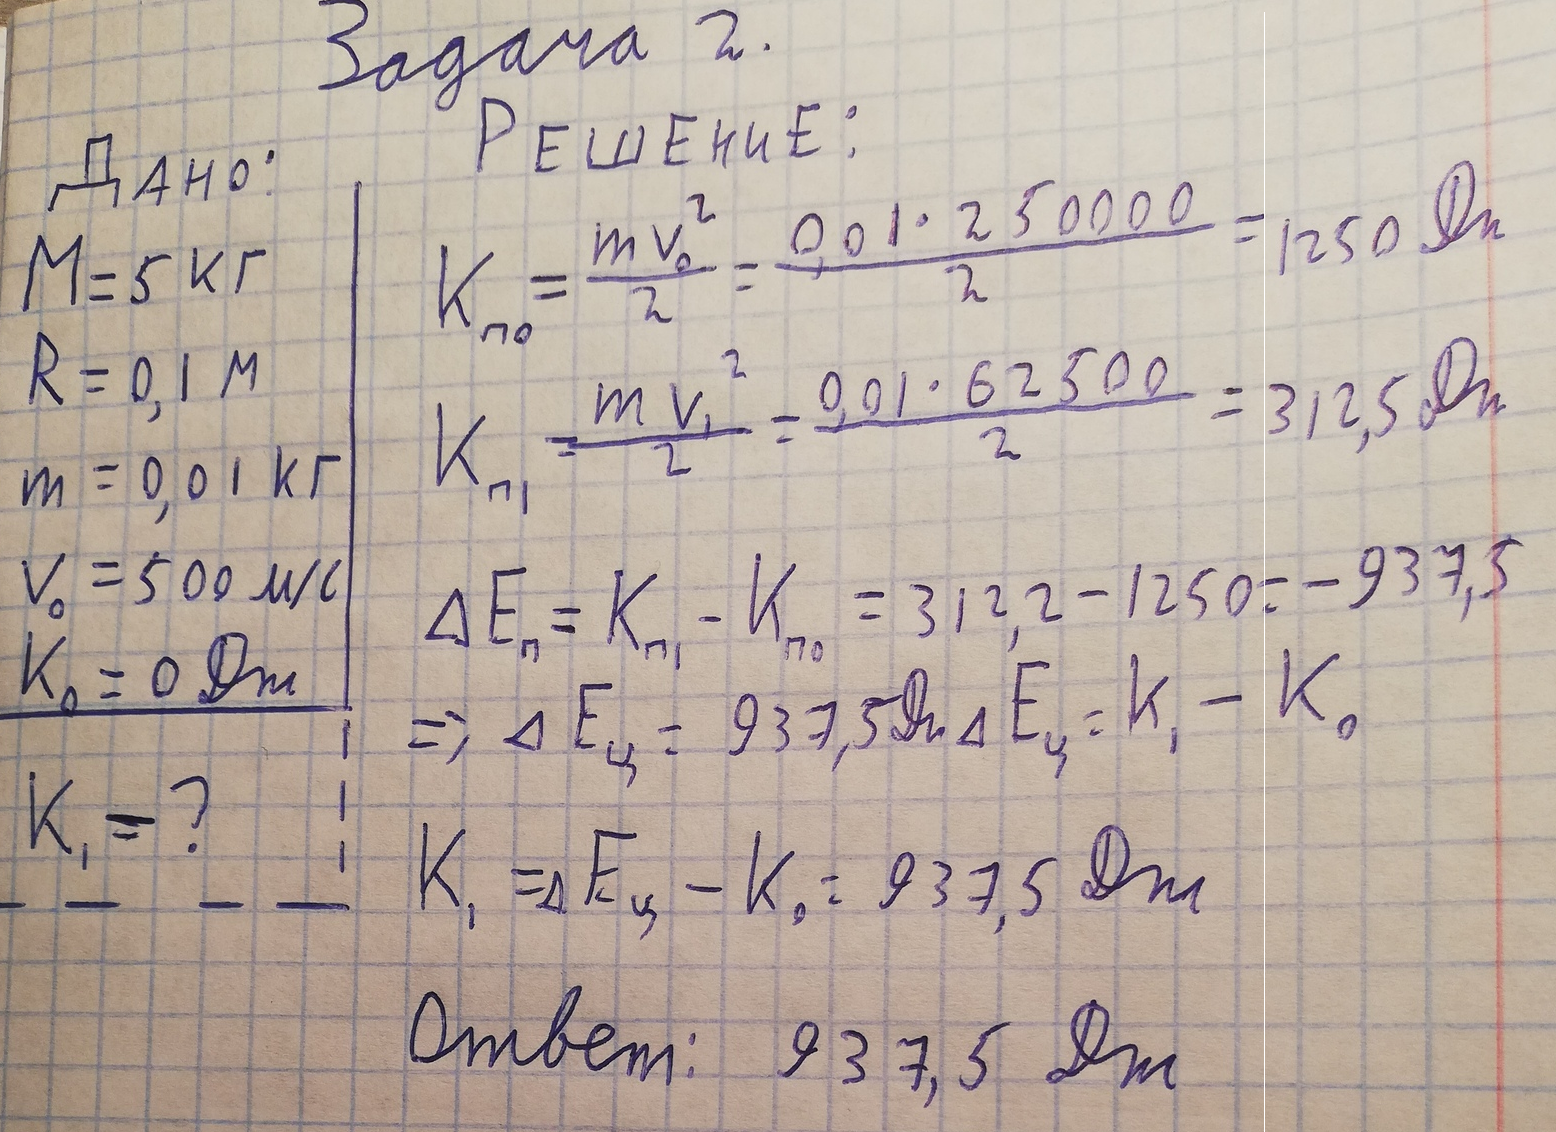 Задача 2.
Дано:
M = 5 кг
R = 0,1 м
m = 0,01 кг
v₀ = 500 м/с
K₀ = 0 Дж
K₁ = ?
Решение:
Kп₀ = mv₀²/2 = 0,01·250000/2 = 1250 Дж
Kп₁ = mv₁²/2 = 0,01·62500/2 = 312,5 Дж
ΔEп = Kп₁ - Kп₀ = 312,2 - 1250 = -937,5
=> ΔEц = 937,5 Дж ΔEц = K₁ - K₀
K₁ = ΔEц - K₀ = 937,5 Дж
Ответ: 937,5 Дж